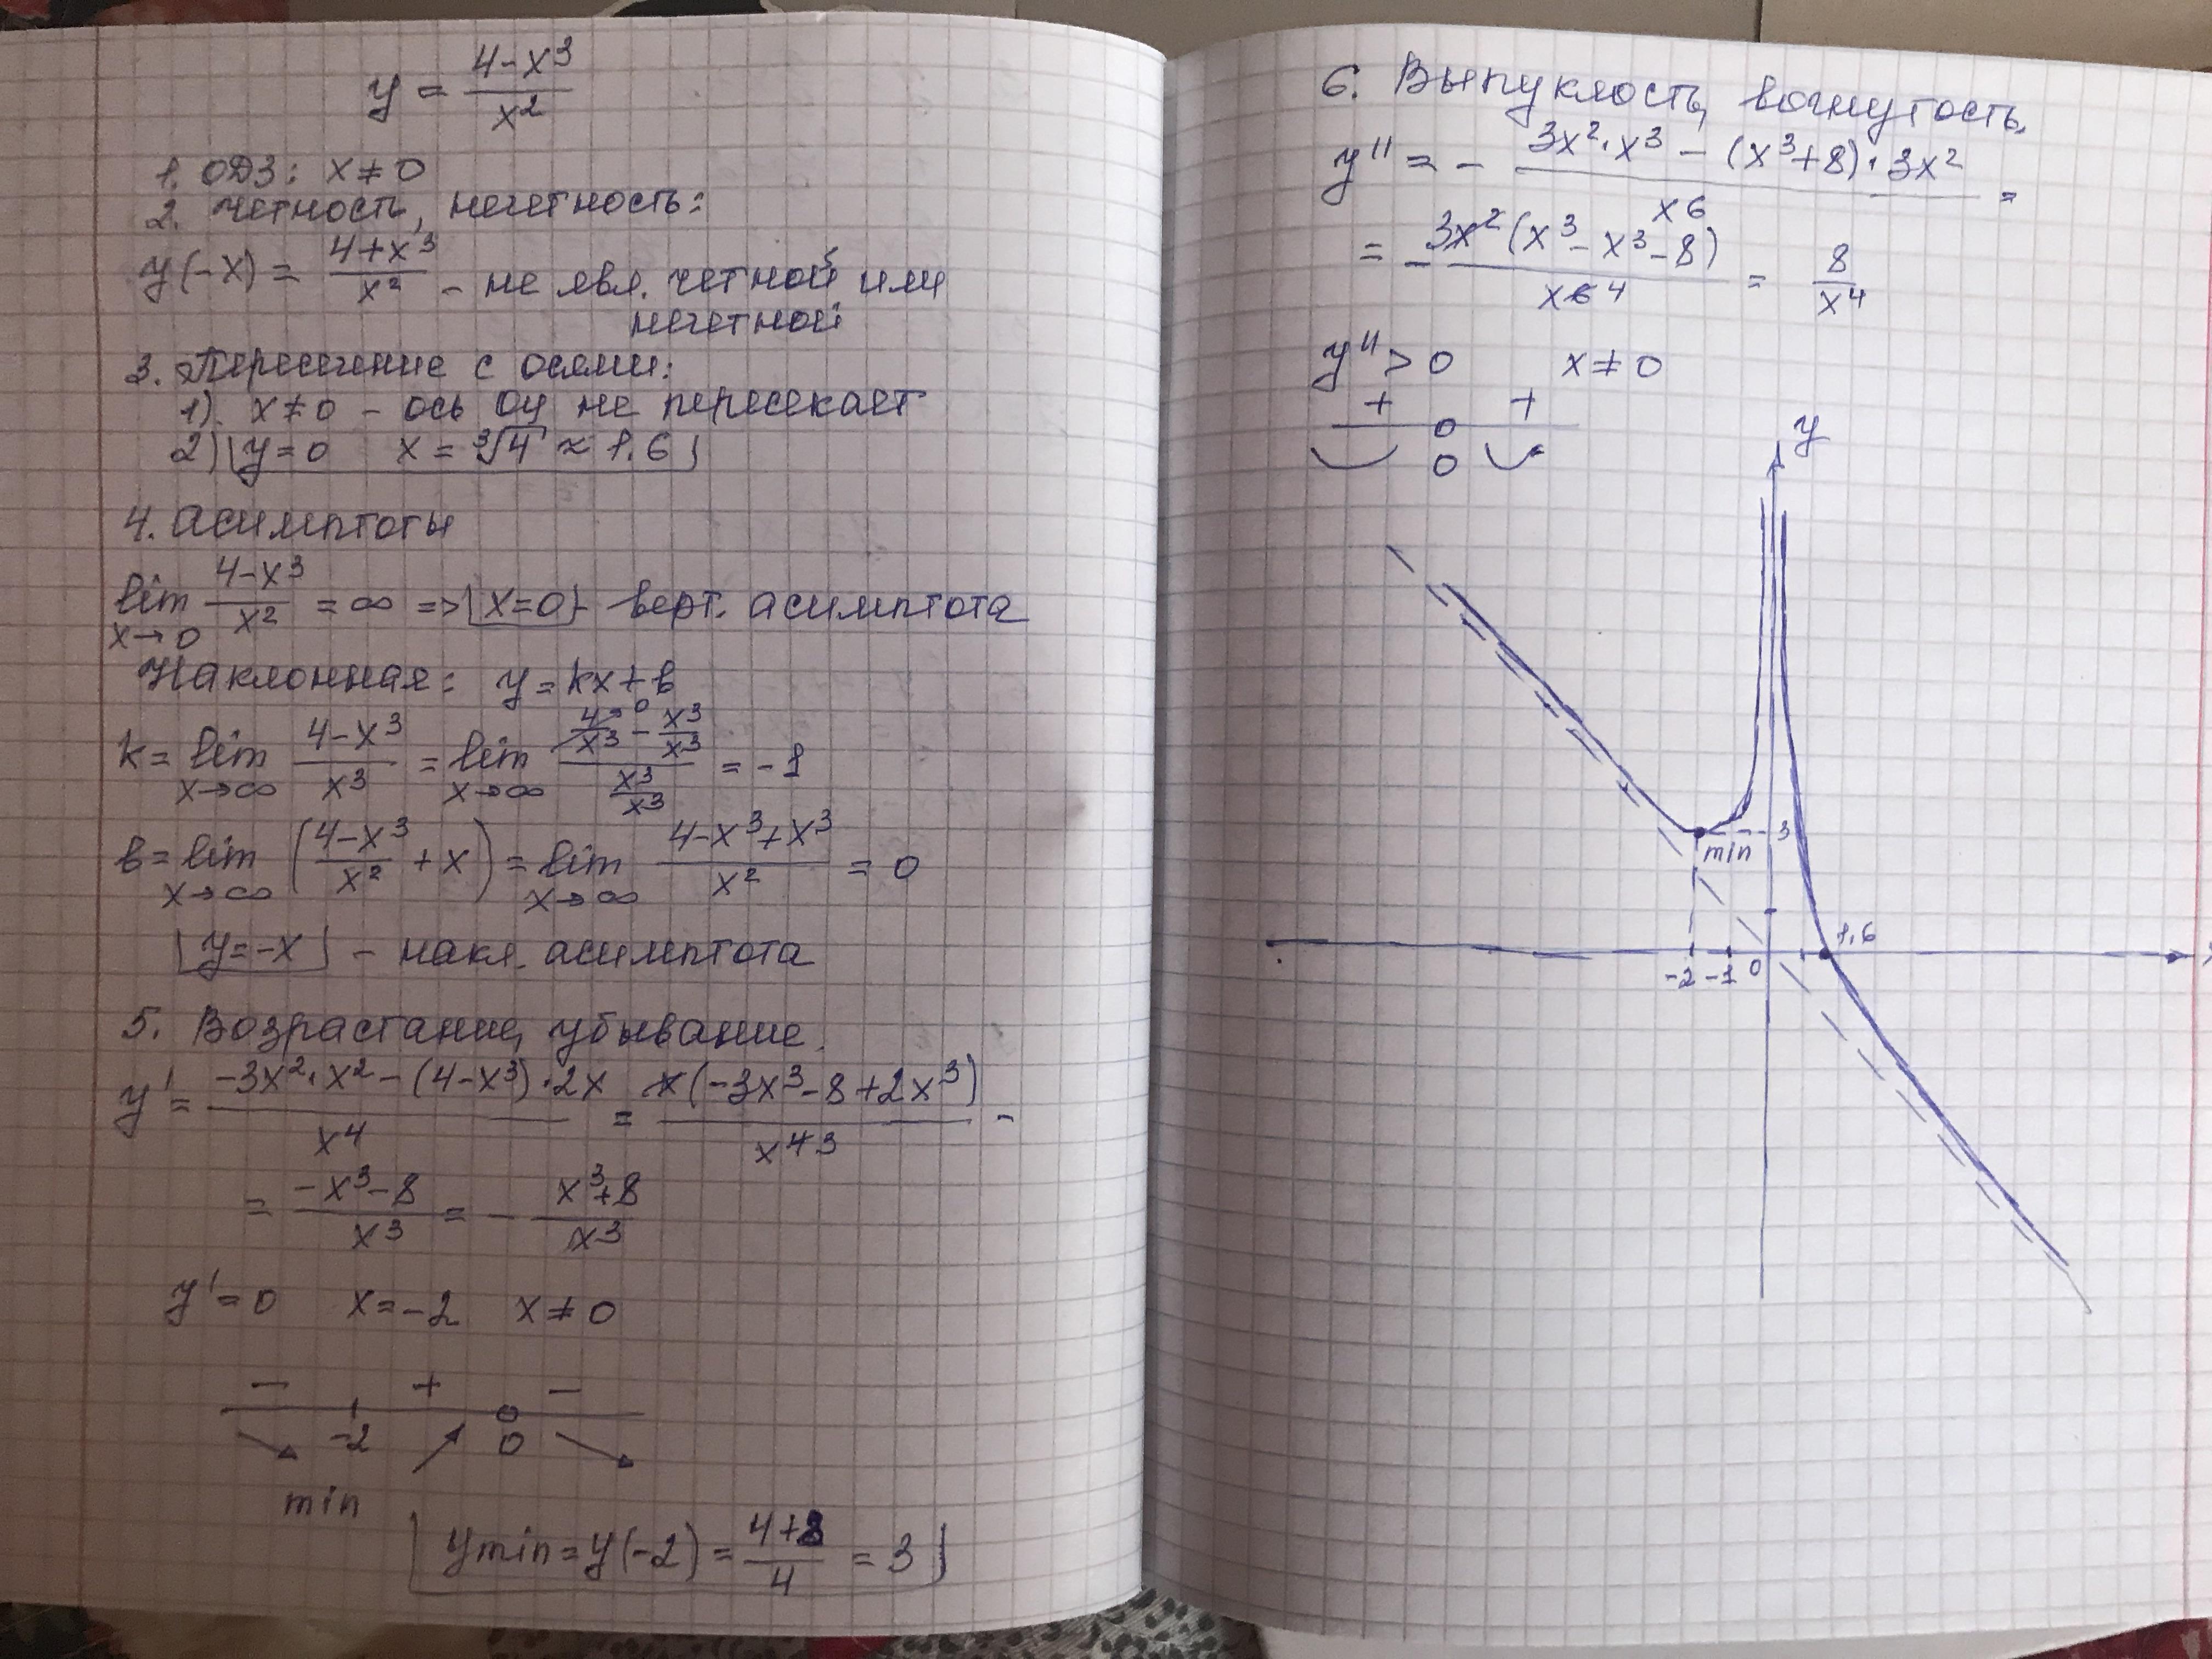 y = (4-x³)/x²
1. ОДЗ: x ≠ 0
2. четность, нечетность:
y(-x) = (4+x³)/x² - не явл. четной или
нечетной
3. Пересечение с осями:
1). x≠0 - ось oy не пересекает
2) y=0 x = ³√4 ≈ 1,6
4. Асимптоты
lim x→0 (4-x³)/x² = ∞ => x=0 - верт. асимптота
Наклонная: y = kx+b
k = lim x→∞ (4-x³)/x³ = lim x→∞ (4/x³ →0 - x³/x³)/(x³/x³) = -1
b = lim x→∞ ((4-x³)/x² + x) = lim x→∞ (4-x³+x³)/x² = 0
y=-x - накл. асимптота
5. Возрастание, убывание.
y' = (-3x²·x² - (4-x³)·2x)/x⁴ = x(-3x³-8+2x³)/x⁴ ³ -
= (-x³-8)/x³ = - (x³+8)/x³
y'=0 x=-2 x≠0
- + -
-2 0
min
ymin = y(-2) = (4+8)/4 = 3
6. Выпуклость, вогнутость.
y'' = - (3x²·x³ - (x³+8)·3x²)/x⁶ =
= - 3x²(x³-x³-8)/x⁶ ⁴ = 8/x⁴
y''>0 x≠0
+ +
0
y
3
min
1,6
-2 -1 0
x